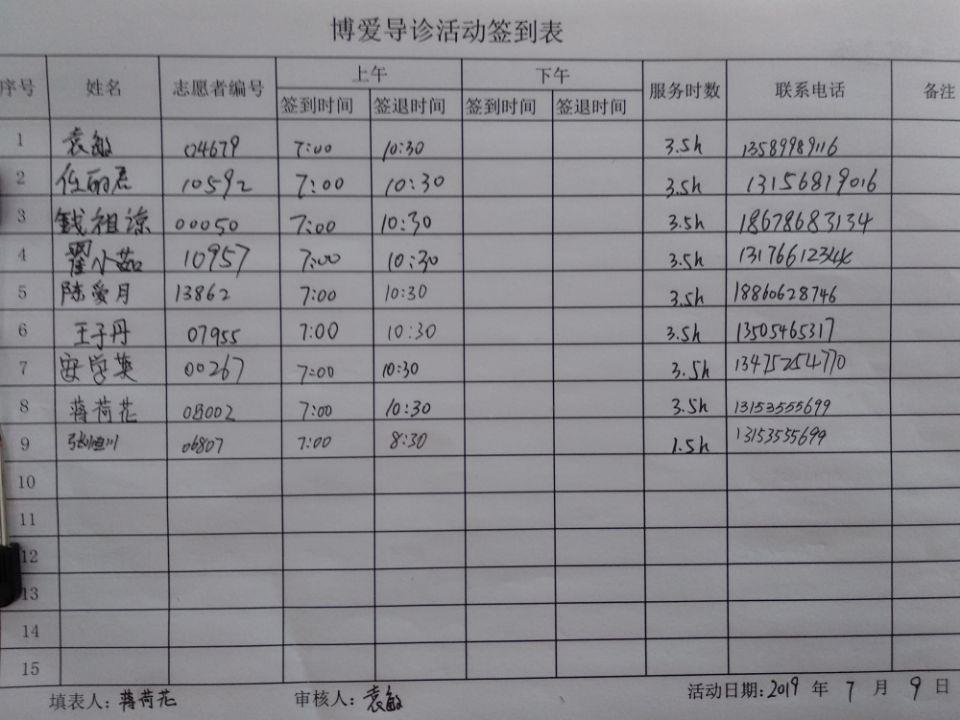 博爱导诊活动签到表
序号 姓名 志愿者编号 上午 下午 服务时数 联系电话 备注
签到时间 签退时间 签到时间 签退时间
1 袁敏 04679 7:00 10:30 3.5h 13589989116
2 任丽君 10592 7:00 10:30 3.5h 13156819016
3 钱祖谅 00050 7:00 10:30 3.5h 18678683134
4 翟小茹 10957 7:00 10:30 3.5h 13176612344
5 陈爱月 13862 7:00 10:30 3.5h 18860628746
6 王子丹 07955 7:00 10:30 3.5h 13505465317
7 安学英 00267 7:00 10:30 3.5h 13475254770
8 蒋荷花 03002 7:00 10:30 3.5h 13153555699
9 张恒川 06807 7:00 8:30 1.5h 13153555699
10
11
12
13
14
15
填表人:蒋荷花 审核人:袁敏 活动日期:2019 年 7 月 9 日